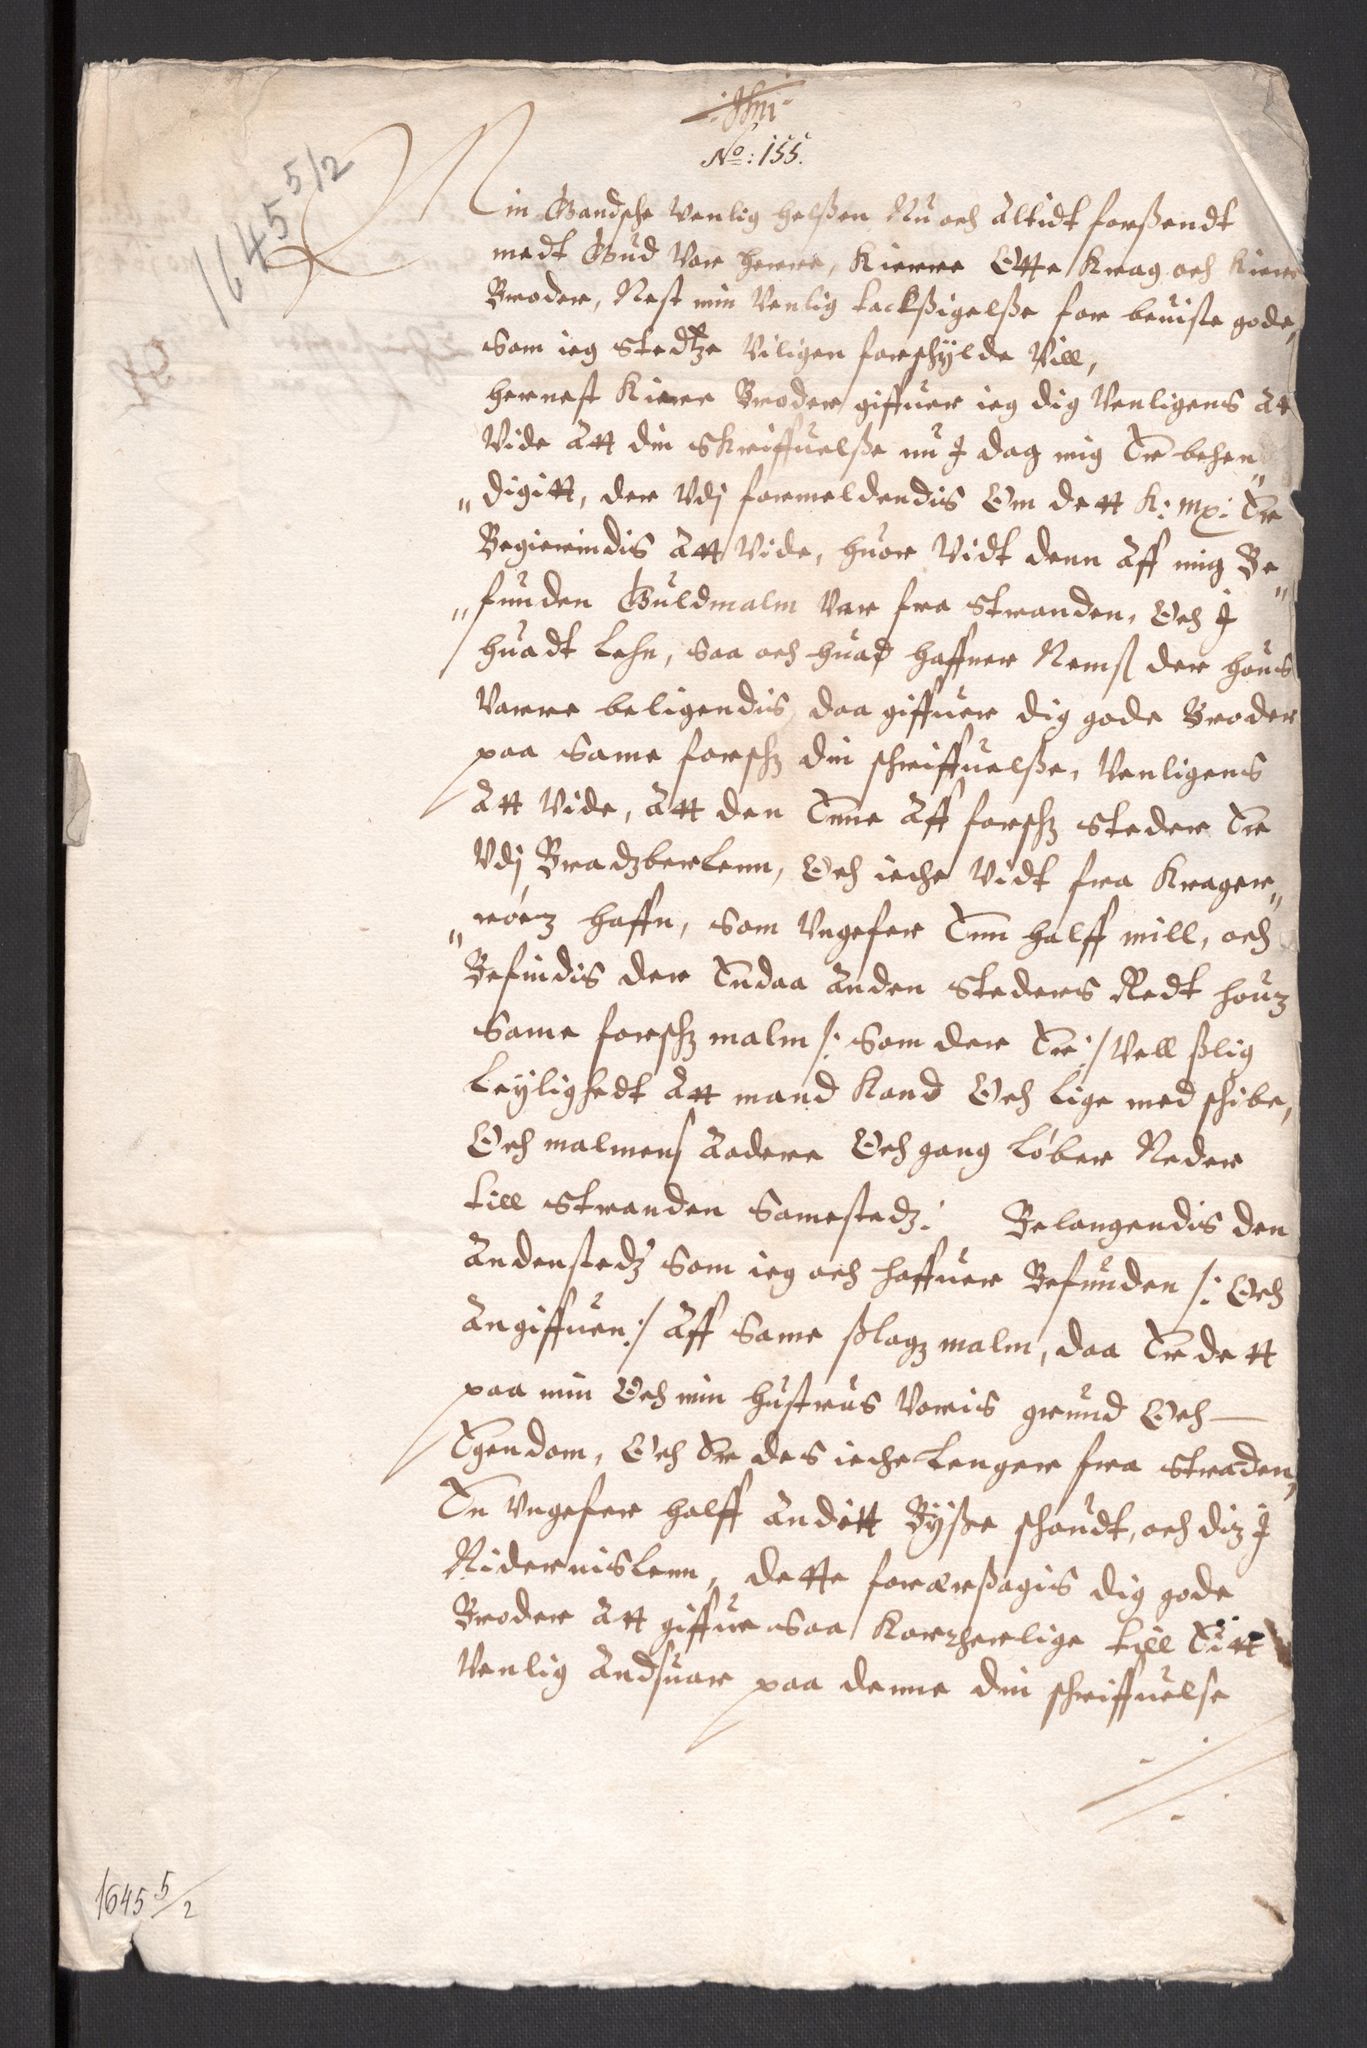 No: 155.
1645 5/2
Min Gandsche Venlig helßen Nu och Altidt forßendt
medt Gud Vor herre, Kierre Otte Krag och Kiere
Broder, Nest min Venlig tackßigelße for beuiste gode,
Som ieg Stedtze Viligen forschÿlde Vill,
hernest Kiere Broder giffuer ieg dig Venligens At
Vide Att din Skriffuelße nu J dag mig Er behen„
„digitt, der Vdj formeldendis Om dett K: Mρ: Er
Begierindis Att Vide, huor Vidt denn Aff mig Be„
„funden Guldmalm Var fra Stranden, Och J
huadt Lehn, Saa och huad haffner Nemst der hous
Varre beligendis, daa giffuer dig gode Broder
paa Same forschz din schriffuelße, Venligens
Att Vide, Att den Enne Aff forschz Steder Er
Vdj Bradzberlenn, Och icke Vidt fra Krager„
„róez haffn, Som Vngefer Enn halff mill, och
Befindis der Endaa Anden Steders Redt houz
Same forschz malm /: Som der Er :/ Vell ßlig
Leÿlighedt Att mand Kand Och Lige med schibe,
Och malmens Aadere Och gang Lóber Neder
till Stranden Samestedz: Belangendis den
Andenstedz Som ieg och haffuer Befunden /: Och
Angiffuen :/ Aff Same ßlagz malm, daa Er dett
paa min Och min hustrus Voris grund Och
Egendom, Och Er des icke Lenger fra Straden,
En Vngefer halff Anditt Bÿße schoudt, och diz J
Nidernislenn, dette foraarßagis dig gode
Broder Att giffue Saa Korzherlige till Eitt
Venlig Andsuar paa denne din schriffuelse
1645 5/2